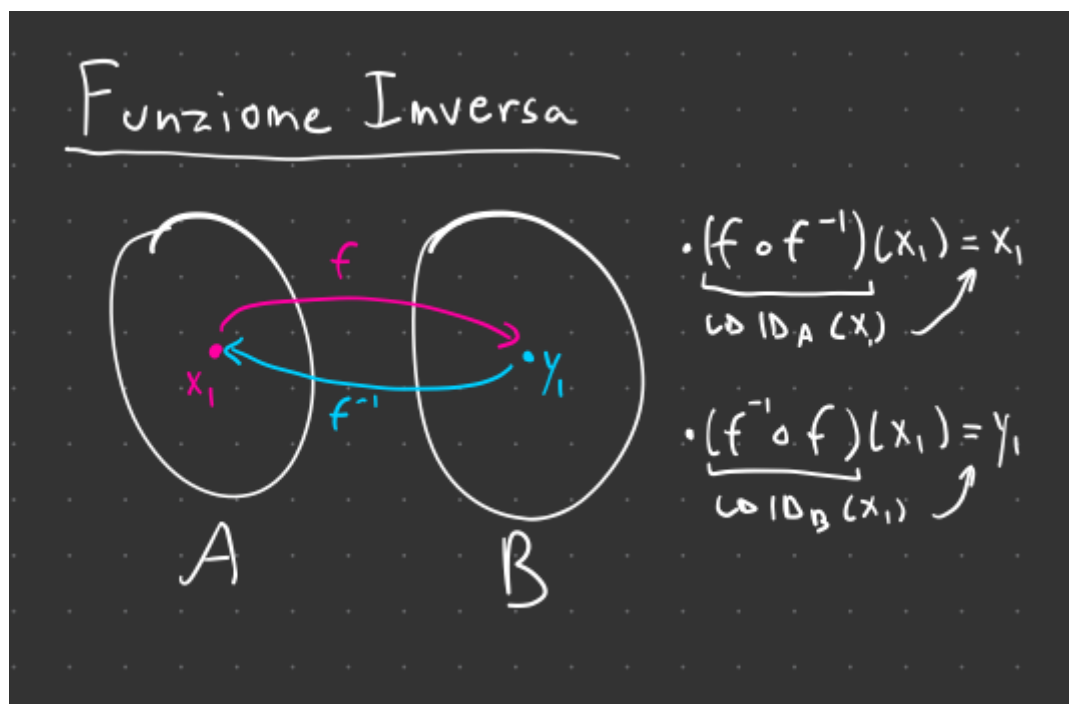 Funzione Inversa
f
x₁
y₁
f⁻¹
A
B
• (f ∘ f⁻¹)(x₁) = x₁
↳ ID_A (x₁)
• (f⁻¹ ∘ f)(x₁) = y₁
↳ ID_B (x₁)